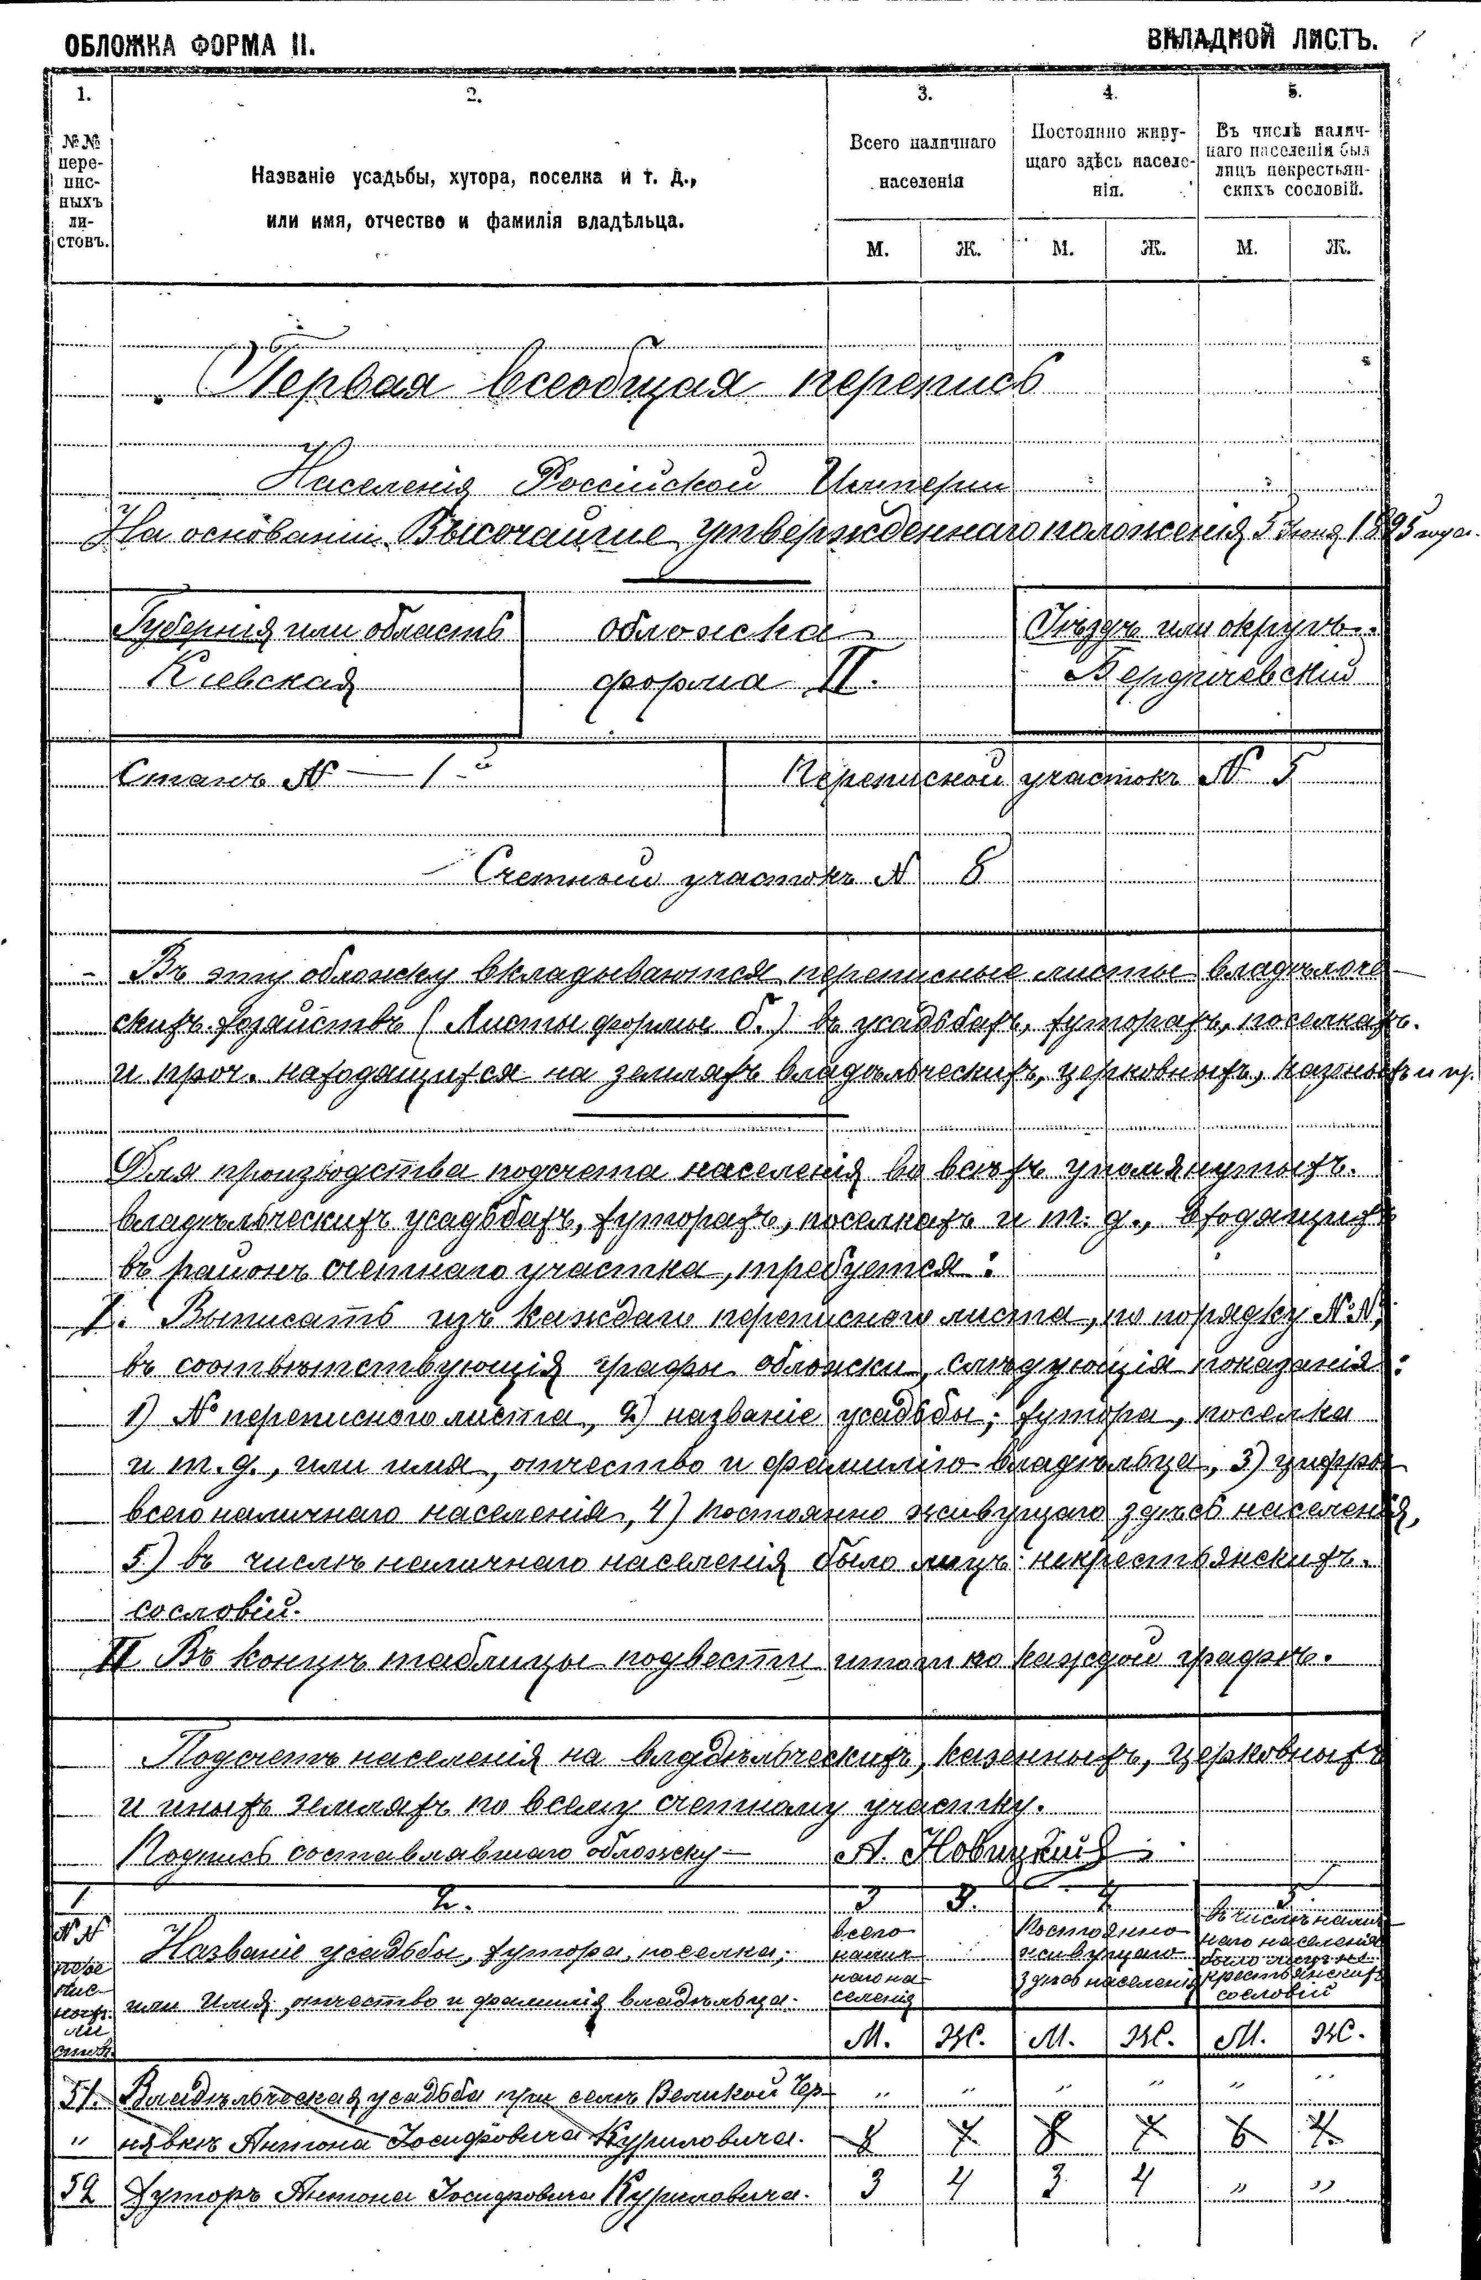 ОБЛОЖКА ФОРМА II.
ВКЛАДНОЙ ЛИСТЪ.
1. 2. 3. 4. 5.
№№ пере-
пис-
ныхъ
ли-
стовъ.
Названіе усадьбы, хутора, поселка и т. д.,
или имя, отчество и фамилія владѣльца.
Всего наличнаго
населенія
Постоянно живу-
щаго здѣсь населе-
нія.
Въ числѣ налич-
наго населенія был
лицъ некрестьян-
скихъ сословій.
М. Ж. М. Ж. М. Ж.
Первая всеобщая перепись
Населенія Россійской Имперіи
На основаніи Высочайше утвержденнаго положенія 5 Іюня 1895 года.
Губернія или область
Кіевская
обложка
форма II.
Уѣздъ или округъ
Бердичевскій
Станъ № — 1-й
Переписной участокъ № 5
Счетный участокъ № 8
Въ эту обложку вкладываются переписные листы владѣльче-
скихъ хозяйствъ (Листы формы б.) въ усадьбахъ, хуторахъ, поселкахъ
и проч. находящихся на земляхъ владѣльческихъ, церковныхъ, казеныхъ и пр.
Для производства подсчета населенія во всѣхъ упомянутыхъ
владѣльческихъ усадьбахъ, хуторахъ, поселкахъ и т. д., входящихъ
въ районъ счетнаго участка, требуется:
I. Выписать изъ каждаго переписного листа, по порядку №№,
въ соотвѣтствующія графы обложки, слѣдующія показанія:
1) № переписного листа, 2) названіе усадьбы, хутора, поселка
и т. д., или имя, отчество и фамилію владѣльца, 3) цифры
всего наличнаго населенія, 4) постоянно живущаго здѣсь населенія,
5) въ числѣ наличнаго населенія было лицъ некрестьянскихъ
сословій.
II Въ концѣ таблицы подвести итоги по каждой графѣ.
Подсчетъ населенія на владѣльческихъ, казенныхъ, церковныхъ
и иныхъ земляхъ по всему счетному участку.
Подпись составлявшаго обложку — А. Новицкій
1 2. 3 3. 4 5
№№
пере
пис-
ныхъ
ли
стовъ.
Названіе усадьбы, хутора, поселка,
или Имя, отчество и фамилія владѣльца.
всего
налич-
наго на-
селенія
Постоянно
живущаго
здѣсь населенія
въ числѣ налич-
наго населенія
было лицъ не-
крестьянскихъ
сословій
М. Ж. М. Ж. М. Ж.
51. Владѣльческая усадьба при селѣ Великой Чер- " " " " " "
" нявкѣ Антона Іосифовича Куриловича. 8 7 8 7 6 4
52 Хуторъ Антона Іосифовича Куриловича. 3 4 3 4 " "